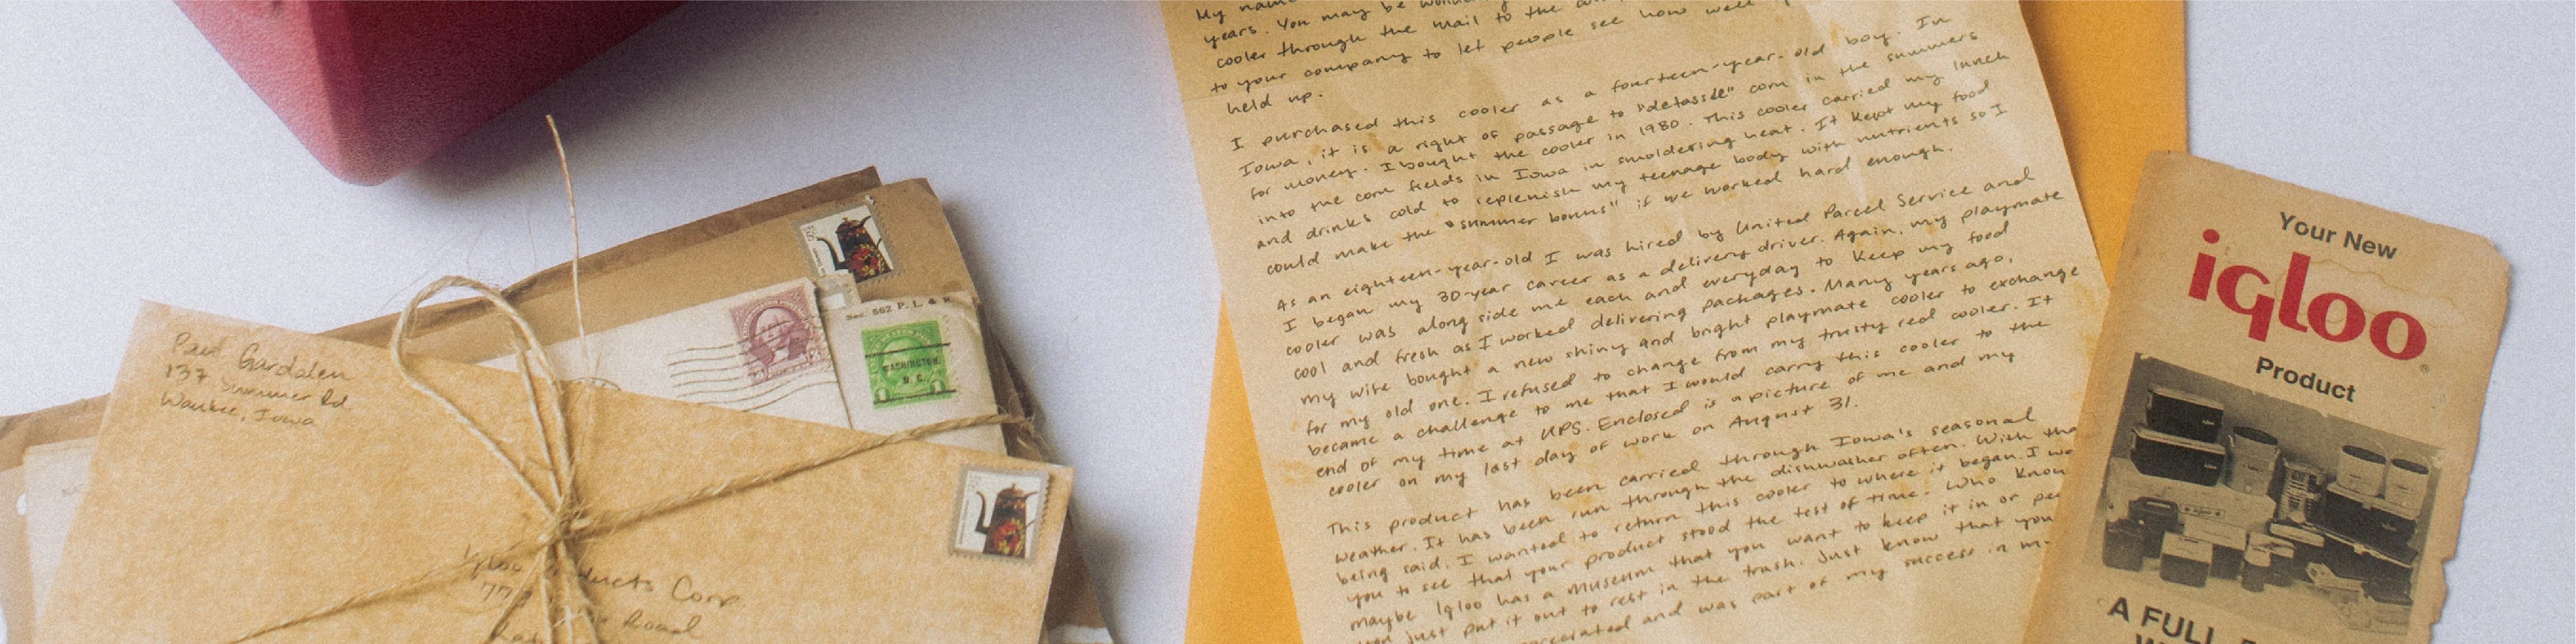 Paul Gardalen
137 Summer Rd.
Waukee, Iowa
Igloo Products Corp
777
Road
Sec. 562 P. L. & R
WASHINGTON
D. C.
1
My name
years. You may be
cooler through the mail to the
to your company to let people see how well
held up.
I purchased this cooler as a fourteen-year-old boy. In
Iowa, it is a right of passage to "detassle" corn in the summers
for money. I bought the cooler in 1980. This cooler carried my lunch
into the corn fields in Iowa in smoldering heat. It kept my food
and drinks cold to replenish my teenage body with nutrients so I
could make the "summer bonus" if we worked hard enough.
As an eighteen-year-old I was hired by United Parcel Service and
I began my 30-year career as a delivery driver. Again, my playmate
cooler was along side me each and everyday to keep my food
cool and fresh as I worked delivering packages. Many years ago,
my wife bought a new shiny and bright playmate cooler to exchange
for my old one. I refused to change from my trusty red cooler. It
became a challenge to me that I would carry this cooler to the
end of my time at UPS. Enclosed is a picture of me and my
cooler on my last day of work on August 31.
This product has been carried through Iowa's seasonal
weather. It has been run through the dishwasher often. With tha
being said, I wanted to return this cooler to where it began. I wa
you to see that your product stood the test of time. Who know
maybe Igloo has a museum that you want to keep it in or per
you just put it out to rest in the trash. Just know that you
appreciated and was part of my success in m
Your New
igloo
Product
A FULL